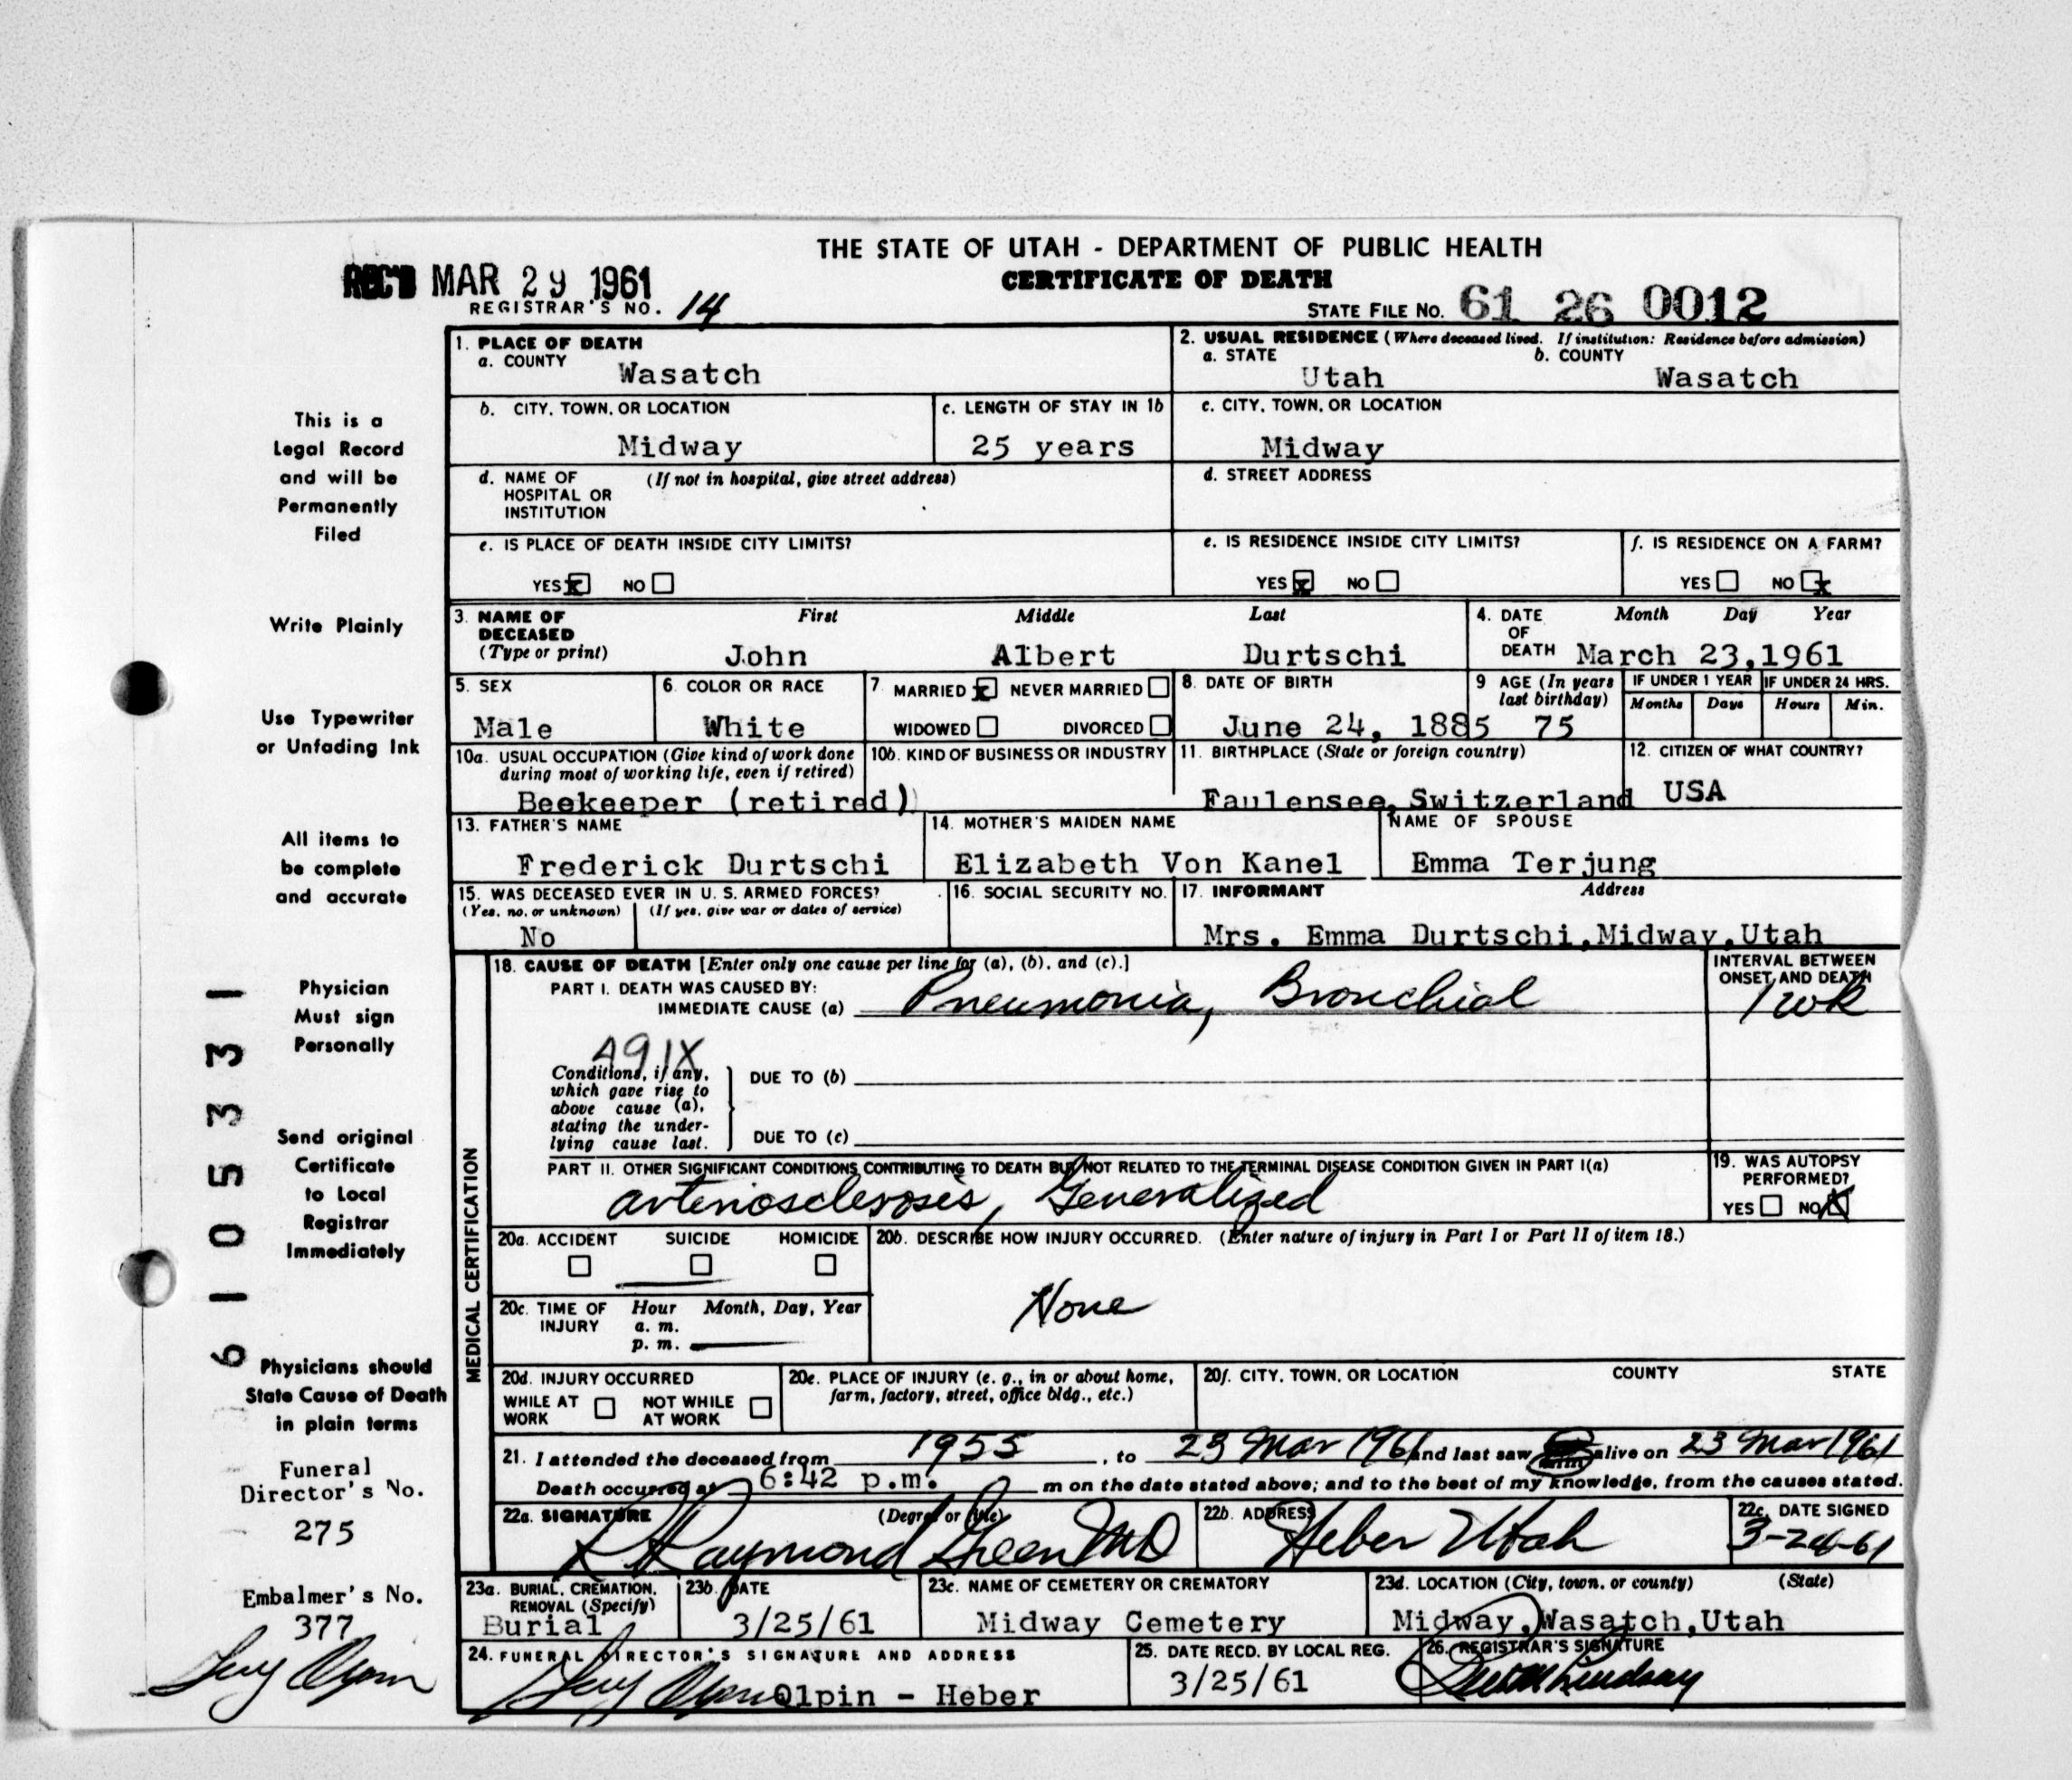 THE STATE OF UTAH - DEPARTMENT OF PUBLIC HEALTH
REC'D MAR 29 1961
CERTIFICATE OF DEATH
REGISTRAR'S NO. 14
STATE FILE NO. 61 26 0012
This is a
Legal Record
and will be
Permanently
Filed
Write Plainly
Use Typewriter
or Unfading Ink
All items to
be complete
and accurate
Physician
Must sign
Personally
Send original
Certificate
to Local
Registrar
Immediately
Physicians should
State Cause of Death
in plain terms
Funeral
Director's No.
275
Embalmer's No.
377
6105331
1. PLACE OF DEATH
a. COUNTY
Wasatch
2. USUAL RESIDENCE (Where deceased lived. If institution: Residence before admission)
a. STATE b. COUNTY
Utah Wasatch
b. CITY, TOWN, OR LOCATION
Midway
c. LENGTH OF STAY IN 1b
25 years
c. CITY, TOWN, OR LOCATION
Midway
d. NAME OF (If not in hospital, give street address)
HOSPITAL OR
INSTITUTION
d. STREET ADDRESS
e. IS PLACE OF DEATH INSIDE CITY LIMITS?
YES x NO
e. IS RESIDENCE INSIDE CITY LIMITS?
YES x NO
f. IS RESIDENCE ON A FARM?
YES NO x
3. NAME OF First Middle Last
DECEASED
(Type or print) John Albert Durtschi
4. DATE Month Day Year
OF
DEATH March 23,1961
5. SEX
Male
6. COLOR OR RACE
White
7. MARRIED x NEVER MARRIED
WIDOWED DIVORCED
8. DATE OF BIRTH
June 24, 1885
9 AGE (In years
last birthday)
75
IF UNDER 1 YEAR IF UNDER 24 HRS.
Months Days Hours Min.
10a. USUAL OCCUPATION (Give kind of work done
during most of working life, even if retired)
Beekeeper (retired)
10b. KIND OF BUSINESS OR INDUSTRY
11. BIRTHPLACE (State or foreign country)
Faulensee, Switzerland
12. CITIZEN OF WHAT COUNTRY?
USA
13. FATHER'S NAME
Frederick Durtschi
14. MOTHER'S MAIDEN NAME
Elizabeth Von Kanel
NAME OF SPOUSE
Emma Terjung
15. WAS DECEASED EVER IN U. S. ARMED FORCES?
(Yes, no, or unknown) (If yes, give war or dates of service)
No
16. SOCIAL SECURITY NO.
17. INFORMANT Address
Mrs. Emma Durtschi,Midway,Utah
MEDICAL CERTIFICATION
18. CAUSE OF DEATH [Enter only one cause per line for (a), (b), and (c).]
PART I. DEATH WAS CAUSED BY:
IMMEDIATE CAUSE (a) Pneumonia, Bronchial
INTERVAL BETWEEN
ONSET AND DEATH
1 wk
491X
Conditions, if any,
which gave rise to
above cause (a),
stating the under-
lying cause last.
DUE TO (b)
DUE TO (c)
PART II. OTHER SIGNIFICANT CONDITIONS CONTRIBUTING TO DEATH BUT NOT RELATED TO THE TERMINAL DISEASE CONDITION GIVEN IN PART I(a)
arteriosclerosis, Generalized
19. WAS AUTOPSY
PERFORMED?
YES NO X
20a. ACCIDENT SUICIDE HOMICIDE
20b. DESCRIBE HOW INJURY OCCURRED. (Enter nature of injury in Part I or Part II of item 18.)
None
20c. TIME OF Hour Month, Day, Year
INJURY a. m.
p. m.
20d. INJURY OCCURRED
WHILE AT NOT WHILE
WORK AT WORK
20e. PLACE OF INJURY (e. g., in or about home,
farm, factory, street, office bldg., etc.)
20f. CITY, TOWN, OR LOCATION COUNTY STATE
21. I attended the deceased from 1955, to 23 Mar 1961 and last saw him alive on 23 Mar 1961
Death occurred at 6:42 p.m. m on the date stated above; and to the best of my knowledge, from the causes stated.
22a. SIGNATURE (Degree or title)
R Raymond Green MD
22b. ADDRESS
Heber Utah
22c. DATE SIGNED
3-24-61
23a. BURIAL, CREMATION,
REMOVAL (Specify)
Burial
23b. DATE
3/25/61
23c. NAME OF CEMETERY OR CREMATORY
Midway Cemetery
23d. LOCATION (City, town, or county) (State)
Midway,Wasatch,Utah
24. FUNERAL DIRECTOR'S SIGNATURE AND ADDRESS
Olpin - Heber
25. DATE RECD. BY LOCAL REG.
3/25/61
26. REGISTRAR'S SIGNATURE
Lindsay